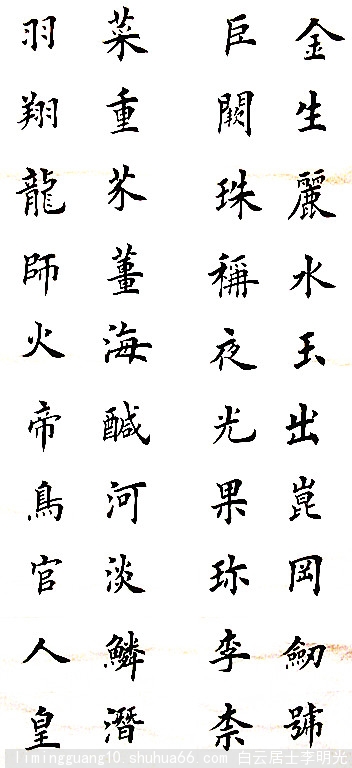 金生麗水玉出崑岡劒號
巨闕珠稱夜光果珎李柰
菜重芥薑海鹹河淡鱗潛
羽翔龍師火帝鳥官人皇
limingguang10.shuhua66.com/白云居士李明光